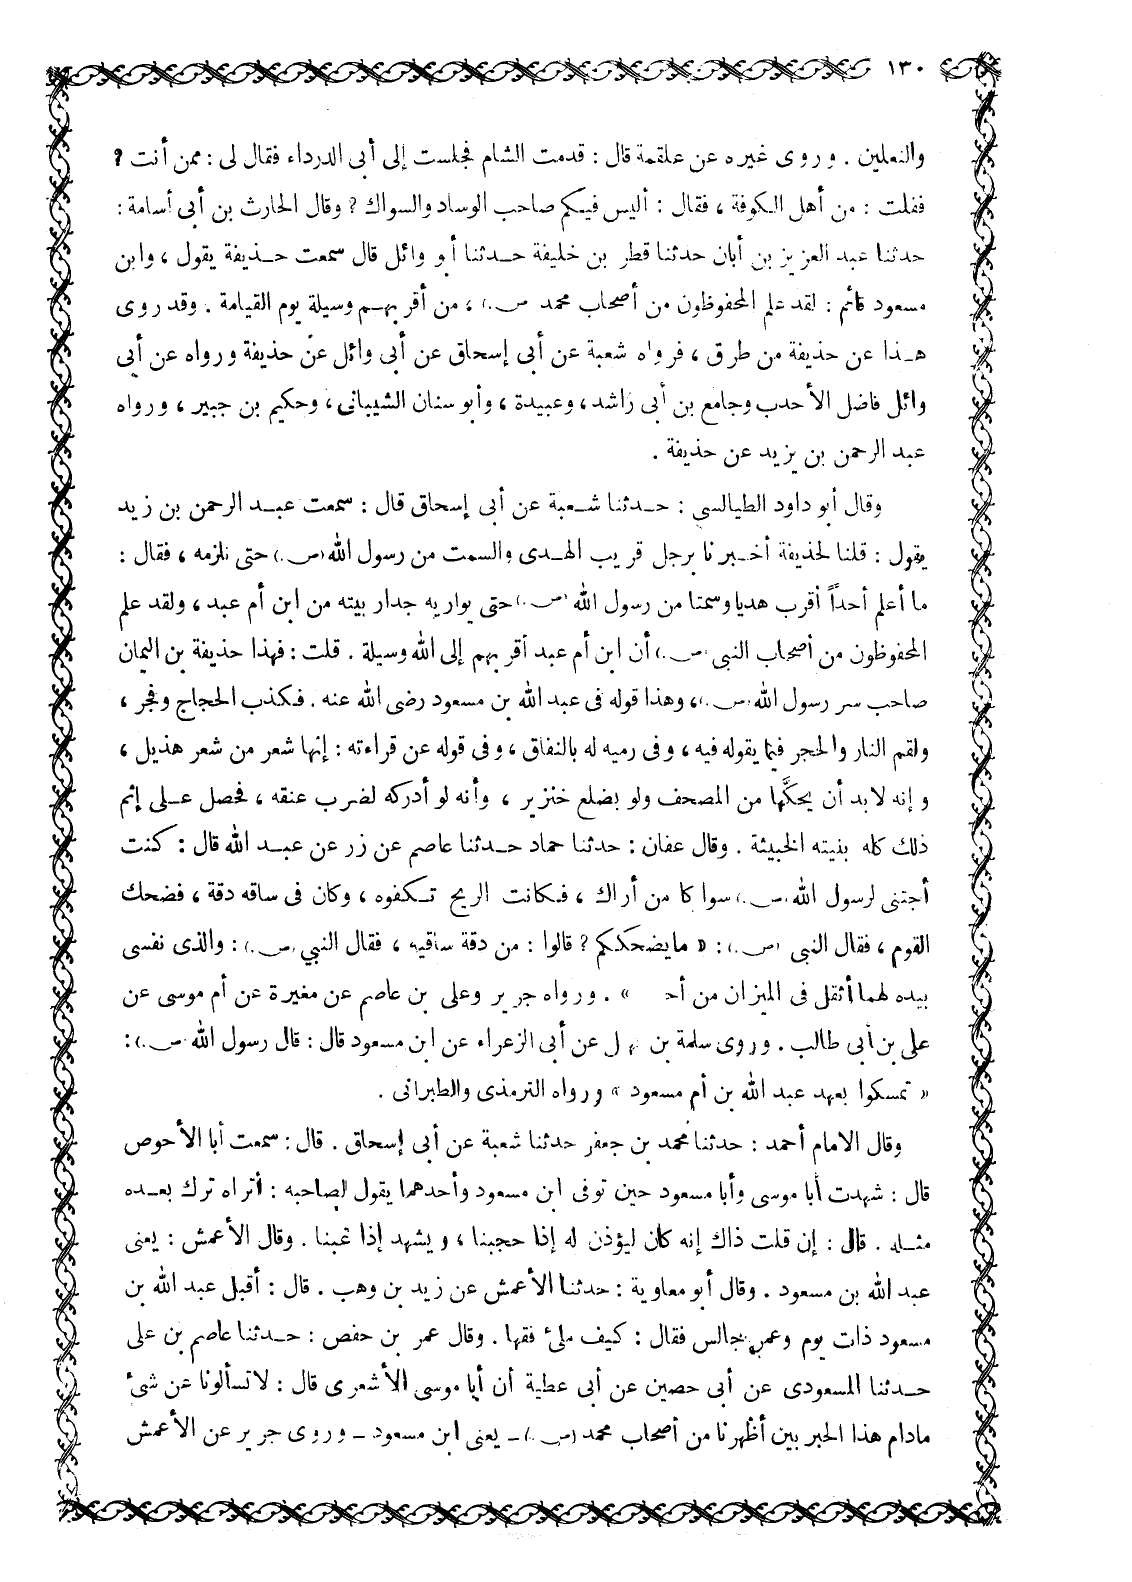 ١٣٠
والنعلين . وروى غيره عن علقمة قال : قدمت الشام فجلست إلى أبى الدرداء فقال لى : ممن أنت ?
فقلت : من أهل الكوفة ، فقال : أليس فيكم صاحب الوساد والسواك ? وقال الحارث بن أبى أسامة :
حدثنا عبد العزيز بن أبان حدثنا قطر بن خليفة حدثنا أبو وائل قال سمعت حذيفة يقول ، وابن
مسعود قائم : لقد علم المحفوظون من أصحاب محمد (ص.) ، من أقربهم وسيلة يوم القيامة . وقد روى
هذا عن حذيفة من طرق ، فرواه شعبة عن أبى إسحاق عن أبى وائل عن حذيفة ورواه عن أبى
وائل فاضل الأحدب وجامع بن أبى راشد ، وعبيدة ، وأبو سنان الشيبانى ، وحكيم بن جبير ، ورواه
عبد الرحمن بن يزيد عن حذيفة .
وقال أبو داود الطيالسى : حدثنا شعبة عن أبى إسحاق قال : سمعت عبد الرحمن بن زيد
يقول : قلنا لحذيفة أخبرنا برجل قريب الهدى والسمت من رسول الله (ص.) حتى نلزمه ، فقال :
ما أعلم أحداً أقرب هديا وسمتا من رسول الله (ص.) حتى يواريه جدار بيته من ابن أم عبد ، ولقد علم
المحفوظون من أصحاب النبى (ص.) أن ابن أم عبد أقربهم إلى الله وسيلة . قلت : فهذا حذيفة بن اليمان
صاحب سر رسول الله (ص.) ، وهذا قوله فى عبد الله بن مسعود رضى الله عنه . فكذب الحجاج وفجر ،
ولقم النار والحجر فيما يقوله فيه ، وفى رميه له بالنفاق ، وفى قوله عن قراءته : إنها شعر من شعر هذيل ،
وإنه لابد أن يحكَّها من المصحف ولو بضلع خنزير ، وأنه لو أدركه لضرب عنقه ، فحصل على إثم
ذلك كله بنيته الخبيثة . وقال عفان : حدثنا حماد حدثنا عاصم عن زر عن عبد الله قال : كنت
أجتنى لرسول الله (ص.) سواكا من أراك ، فكانت الريح تكفوه ، وكان فى ساقه دقة ، فضحك
القوم ، فقال النبى (ص.) : « مايضحككم ? قالوا : من دقة ساقيه ، فقال النبي (ص.) : والذى نفسى
بيده لهما أثقل فى الميزان من أحـ » . ورواه جرير وعلى بن عاصم عن مغيرة عن أم موسى عن
على بن أبى طالب . وروى سلمة بن عن أبى الزعراء عن ابن مسعود قال : قال رسول الله (ص.) :
« تمسكوا بعهد عبد الله بن أم مسعود » ورواه الترمذى والطبرانى .
وقال الامام أحمد : حدثنا محمد بن جعفر حدثنا شعبة عن أبى إسحاق . قال : سمعت أبا الأحوص
قال : شهدت أبا موسى وأبا مسعود حين توفى ابن مسعود وأحدهما يقول لصاحبه : أتراه ترك بعده
مثله . قال : إن قلت ذاك إنه كان ليؤذن له إذا حجبنا ، ويشهد إذا غبنا . وقال الأعمش : يعنى
عبد الله بن مسعود . وقال أبو معاوية : حدثنا الأعمش عن زيد بن وهب . قال : أقبل عبد الله بن
مسعود ذات يوم وعمر جالس فقال : كيف ملئ فقها . وقال عمر بن حفص : حدثنا عاصم بن على
حدثنا المسعودى عن أبى حصين عن أبى عطية أن أبا موسى الأشعرى قال : لاتسألونا عن شئ
مادام هذا الحبر بين أظهرنا من أصحاب محمد (ص.) ـ يعنى ابن مسعود ـ وروى جرير عن الأعمش